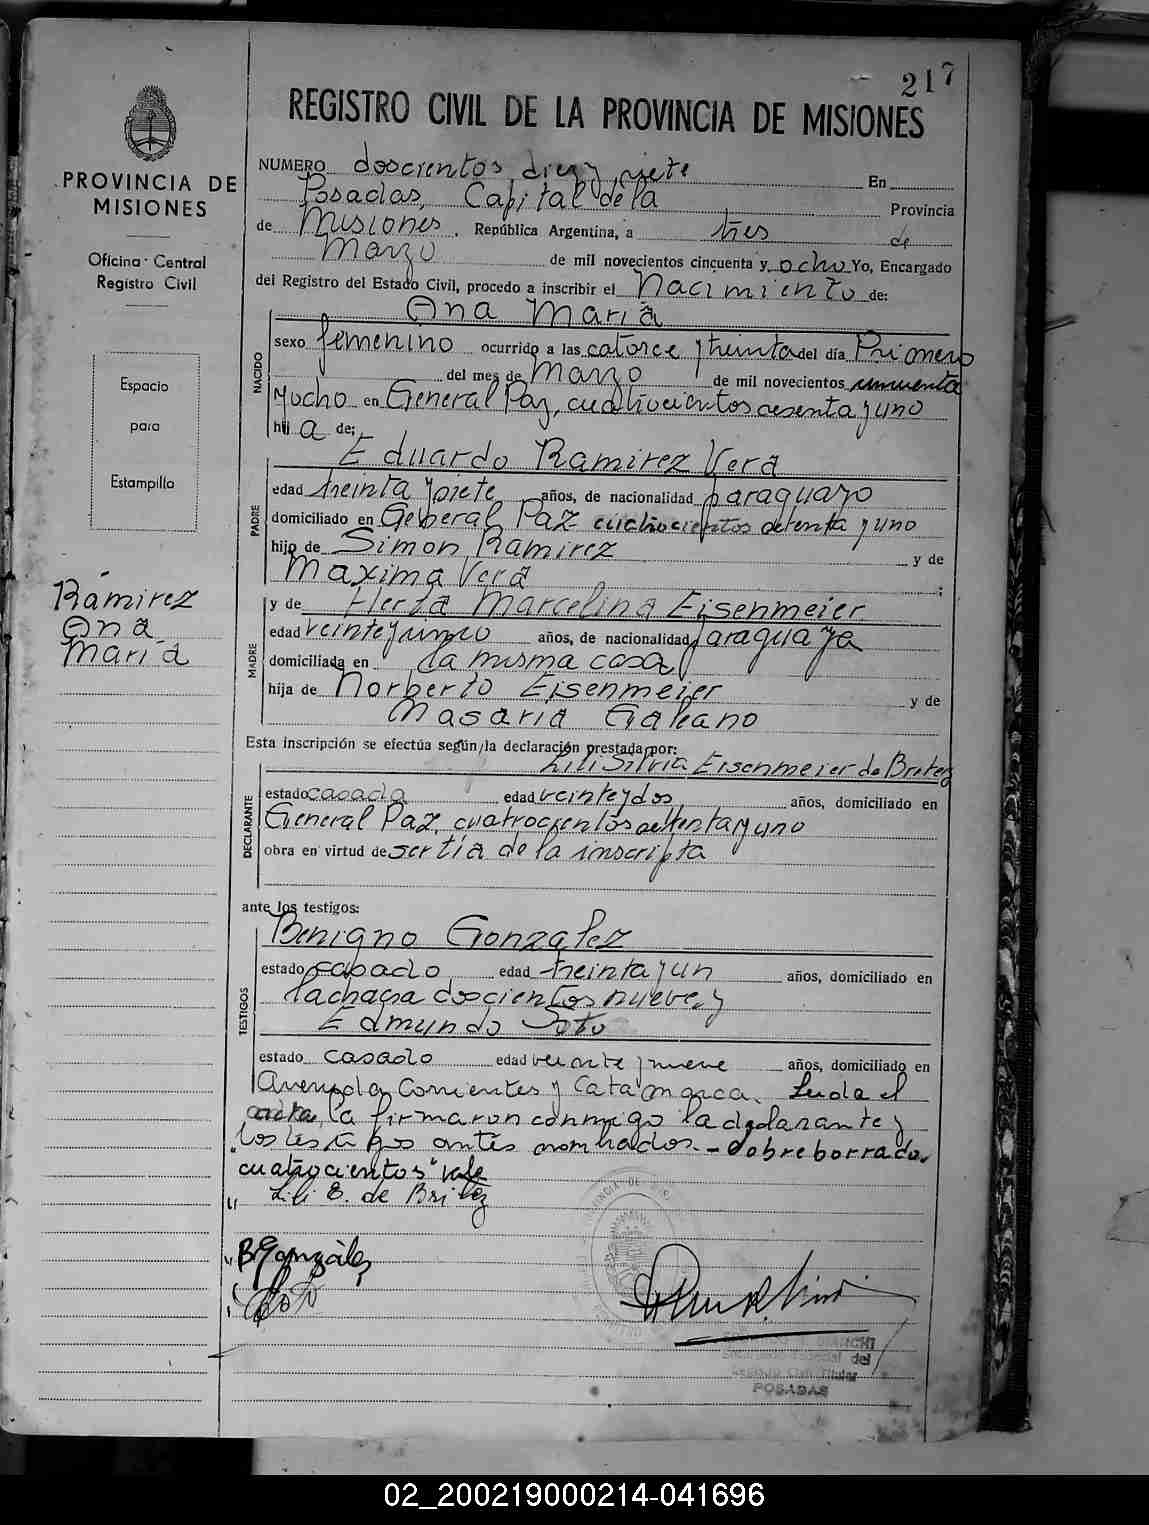 217
REGISTRO CIVIL DE LA PROVINCIA DE MISIONES
PROVINCIA DE
MISIONES
Oficina Central
Registro Civil
Espacio
para
Estampilla
Ramirez
Ana
Maria
NUMERO doscientos diez y siete En
Posadas, Capital de la Provincia
de Misiones, República Argentina, a tres de
Marzo de mil novecientos cincuenta y ocho Yo, Encargado
del Registro del Estado Civil, procedo a inscribir el Nacimiento de:
Ana Maria
NACIDO
sexo femenino ocurrido a las catorce y treinta del día Primero
del mes de Marzo de mil novecientos cincuenta
y ocho en General Paz, cuatrocientos sesenta y uno
hij a de:
Eduardo Ramirez Vera
PADRE
edad treinta y siete años, de nacionalidad paraguayo
domiciliado en General Paz cuatrocientos setenta y uno
hijo de Simon Ramirez y de
Maxima Vera ;
MADRE
y de Herta Marcelina Eisenmeier
edad veinte y cinco años, de nacionalidad paraguaya
domiciliada en la misma casa
hija de Norberto Eisenmeier y de
Nasaria Galeano
Esta inscripción se efectúa según la declaración prestada por:
Lili Silvia Eisenmeier de Britez
DECLARANTE
estado casada edad veinte y dos años, domiciliado en
General Paz, cuatrocientos setenta y uno
obra en virtud de ser tia de la inscripta
ante los testigos:
Benigno Gonzalez
TESTIGOS
estado casado edad treinta y un años, domiciliado en
la chacra doscientos nueve, y
Edmundo Soto
estado casado edad veinte y nueve años, domiciliado en
Avenida Corrientes y Catamarca. Leida el
acta, la firmaron conmigo la declarante y
los testigos antes nombrados.- Sobreborrado.
"cuatrocientos" vale
Lili E. de Britez
B. González
BIANCHI
del
Registro Civil Titular
POSADAS
02_200219000214-041696